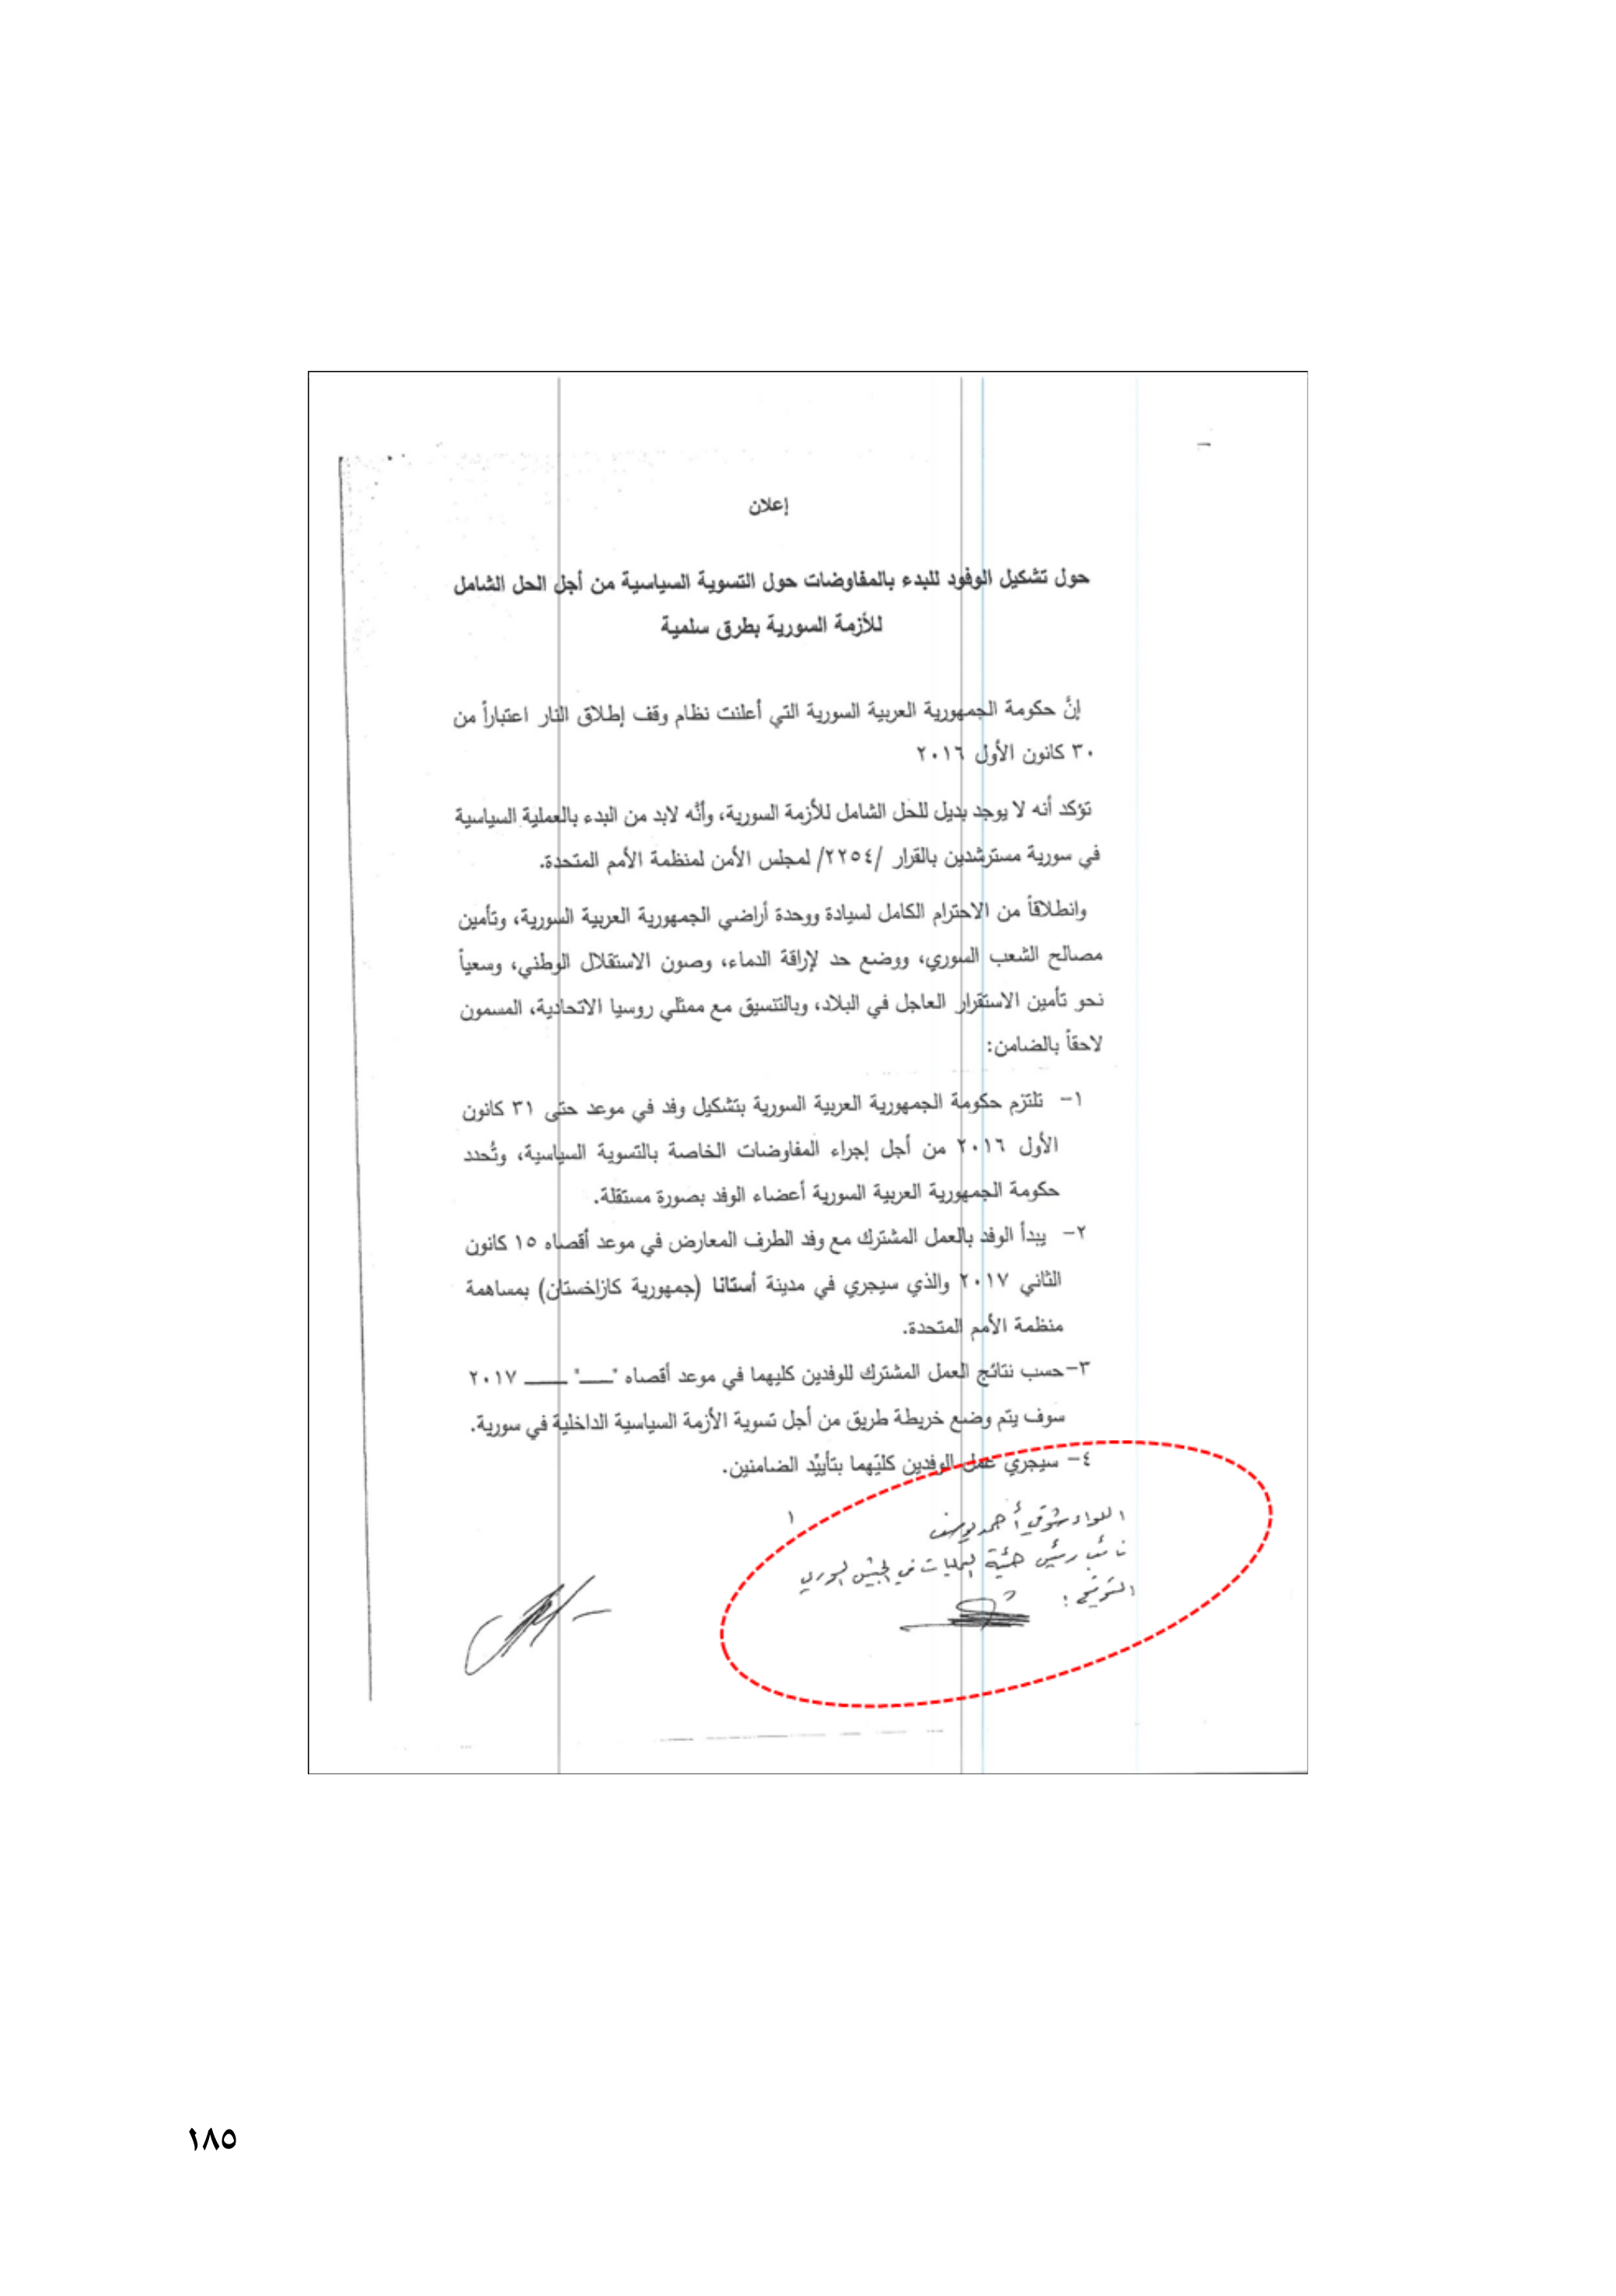 إعلان
حول تشكيل الوفود للبدء بالمفاوضات حول التسوية السياسية من أجل الحل الشامل
للأزمة السورية بطرق سلمية
إنَّ حكومة الجمهورية العربية السورية التي أعلنت نظام وقف إطلاق النار اعتباراً من
٣٠ كانون الأول ٢٠١٦
تؤكد أنه لا يوجد بديل للحل الشامل للأزمة السورية، وأنَّه لابد من البدء بالعملية السياسية
في سورية مسترشدين بالقرار /٢٢٥٤/ لمجلس الأمن لمنظمة الأمم المتحدة.
وانطلاقاً من الاحترام الكامل لسيادة ووحدة أراضي الجمهورية العربية السورية، وتأمين
مصالح الشعب السوري، ووضع حد لإراقة الدماء، وصون الاستقلال الوطني، وسعياً
نحو تأمين الاستقرار العاجل في البلاد، وبالتنسيق مع ممثلي روسيا الاتحادية، المسمون
لاحقاً بالضامن:
١- تلتزم حكومة الجمهورية العربية السورية بتشكيل وفد في موعد حتى ٣١ كانون
الأول ٢٠١٦ من أجل إجراء المفاوضات الخاصة بالتسوية السياسية، وتُحدد
حكومة الجمهورية العربية السورية أعضاء الوفد بصورة مستقلة.
٢- يبدأ الوفد بالعمل المشترك مع وفد الطرف المعارض في موعد أقصاه ١٥ كانون
الثاني ٢٠١٧ والذي سيجري في مدينة أستانا (جمهورية كازاخستان) بمساهمة
منظمة الأمم المتحدة.
٣-حسب نتائج العمل المشترك للوفدين كليهما في موعد أقصاه "___" ____ ٢٠١٧
سوف يتم وضع خريطة طريق من أجل تسوية الأزمة السياسية الداخلية في سورية.
٤- سيجري عمل الوفدين كليّهما بتأييّد الضامنين.
١
اللواء شوقي أحمد يوسف
نائب رئيس هيئة العمليات في الجيش السوري
التوقيع:
١٨٥